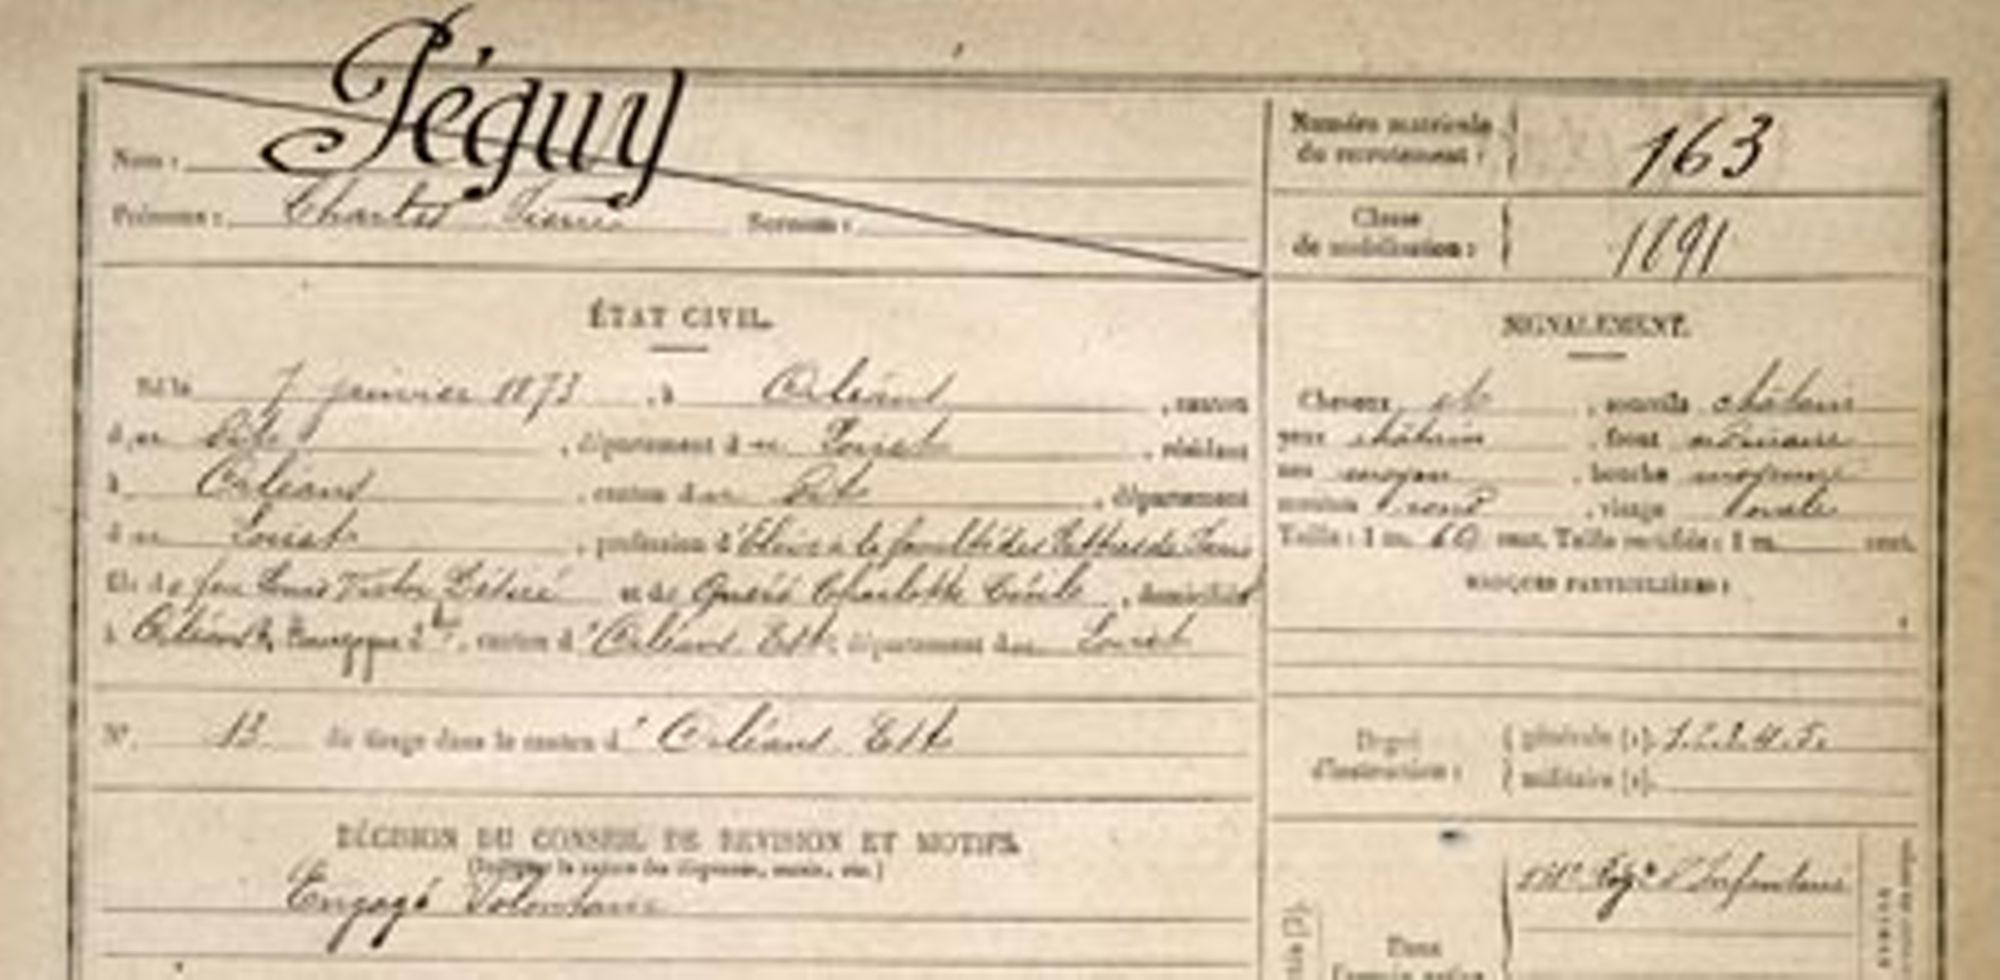 Péguy
Nom :
Prénoms : Charles Pierre Surnom :
Numéro matricule
du recrutement : 163
Classe
de mobilisation : 1891
ÉTAT CIVIL.
Né le 7 janvier 1873, à Orléans, canton
d un dit, département d u Loiret, résidant
à Orléans, canton d u dit, département
d u Loiret, profession d'Elève à la faculté des Lettres de Paris
fils de feu Louis Victor Désiré et de Quéré Charlotte Cécile, domiciliés
à Orléans Bourgogne, canton d'Orléans Est, département du Loiret
N° 13 du tirage dans le canton d'Orléans Est
DÉCISION DU CONSEIL DE REVISION ET MOTIFS.
Engagé Volontaire
SIGNALEMENT.
Cheveux et, sourcils châtain
yeux châtain, front ordinaire
nez moyen, bouche moyenne
menton rond, visage ovale
Taille : 1 m. 60 cent. Taille rectifiée : 1 m. cent.
MARQUES PARTICULIÈRES :
Degré
d'instruction :
générale (1). 1.2.3.4.5.
militaire (1).
Rég.t d'Infanterie
Dans
l'armée active